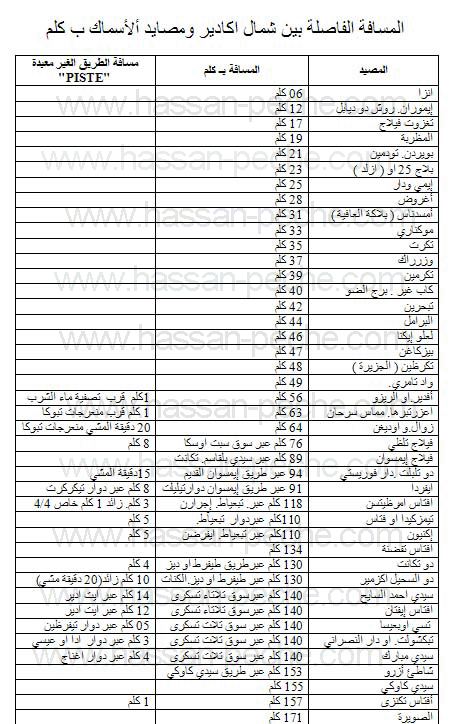 المسافة الفاصلة بين شمال اكادير ومصايد ألأسماك ب كلم
المصيد المسافة بـ كلم مسافة الطريق الغير معبدة "PISTE"
انزا 06 كلم
إيموران. روش دو ديابل 12 كلم
تغزوت فيلاج 17 كلم
المظربة 19 كلم
بويردن. تودمين 21 كلم
بلاج 25 او ( ازلد ) 23 كلم
إيمي ودار 25 كلم
أغروض 28 كلم
أمسدناس ( بلاكة العافية ) 31 كلم
موكناري 33 كلم
تكرت 35 كلم
وزرراك 37 كلم
تكرمين 39 كلم
كاب غير . برج الضو 40 كلم
تبحرين 42 كلم
البرامل 44 كلم
لعلو إيكنا 46 كلم
بيزكاغن 47 كلم
تكرظين ( الجزيرة ) 48 كلم
واد تامري. 49 كلم
أفدير. او الريزو 56 كلم 1كلم قرب تصفية ماء الشرب
اعزرتبوها. مماس سرحان 63 كلم 1 كلم قرب متعرجات تبوكا
زوال. او وديغن 64 كلم 20 دقيقة المشي متعرجات تبوكا
فيلاج تلظي 76 كلم عبر سوق سبت اوسكا 8 كلم
فيلاج إيمسوان 89 كلم عبر سيدي بلقاسم. تكانت
دو تليلت .دار فوريستي 94 عبر طريق إيمسوان القديم 15دقيقة المشي
ايفردا 91 عبر طريق إيمسوان دوارتيليلت 8 كلم عبر دوار تيكركرت
افتاس امرظيتسن 118 كلم عبر. تبعياط. إجرارن 3 كلم. زائد 1 كلم خاص 4/4
تيمزكيدا او فتاس 110كلم عبردوار تبعياط. 5 كلم
إكنيون 110كلم عبر تبعياط. ايفرضن 5 كلم
افتاس تفضنة 134 كلم
دو تكانت 130 كلم عبرطريق طيفرط او ديز 4 كلم
دو السحيل اكزمير 130 كلم عبر طيفرط او ديز.الكنات 10 كلم زائد(20 دقيقة مشي)
سيدي احمد السايح 140 كلم عبرسوق ثلاثاء تسكرى 14 كلم عبر ايت ادير
افتاس إيفتان 140 كلم عبرسوق ثلاثاء تسكرى 12 كلم عبر ايت ادير
تسي اوبعيسا 140 كلم عبر سوق ثلاث تسكرى 05 كلم عبر دوار تيفرظين
تبكشولت. او دار النصراني 140 كلم عبر سوق ثلاث تسكرى 3 كلم عبر دوار ادا او عيسي
سيدي مبارك 140 كلم عبر سوق ثلاث تسكرى 4 كلم عبر دوار اغناج
شاطئ أزرو 153 كلم عبر طريق سيدي كاوكي
سيدي كاوكي 155 كلم
أفتاس تكنزى 157 كلم 1 كلم
الصويرة 171 كلم
www.hassan-peche.com